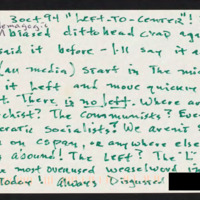 3 Oct. 94 "LEFT-TO-CENTER"!
demagogic
biased dittohead crap aga
said it before - I'll say it a
(all media) start in the mi
it left and move quickly
t. There is no left. Where ar
chist? The communists? Eve
cratic socialists? We aren't s
on cspan, or anywhere else
abound! The Left? The "L"
most overused weaselword in
today! Always Disgusted